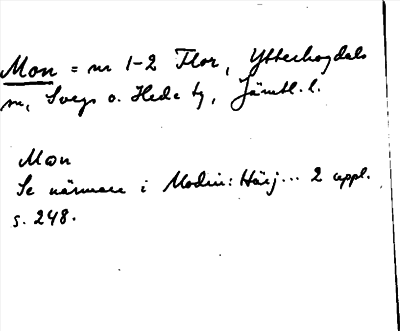 Mon = nr 1-2 Flor, Ytterhogdals
sn, Svegs o. Hede tg, Jämtl. l.
Mon
Se närmare i Modin: Härj... 2 uppl.
s. 248.